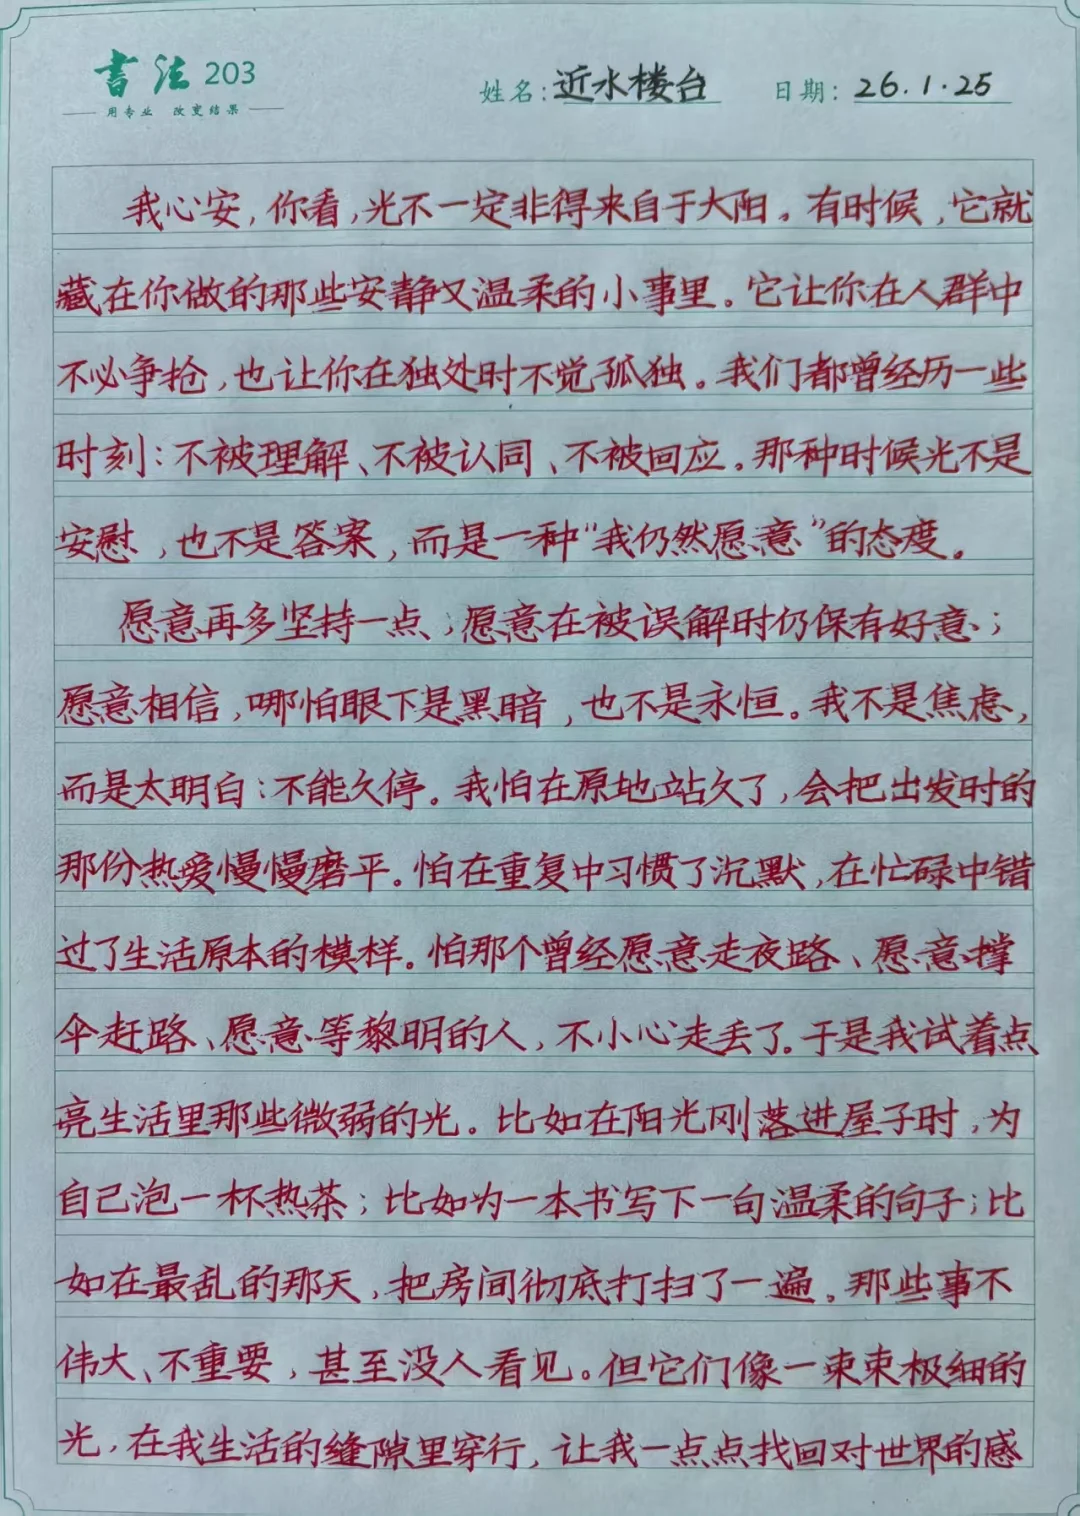 書法 203
用专业 改变结果
姓名：近水楼台 日期：26.1.25
我心安，你看，光不一定非得来自于大阳。有时候，它就
藏在你做的那些安静又温柔的小事里。它让你在人群中
不必争抢，也让你在独处时不觉孤独。我们都曾经历一些
时刻：不被理解、不被认同、不被回应。那种时候光不是
安慰，也不是答案，而是一种“我仍然愿意”的态度。
愿意再多坚持一点；愿意在被误解时仍保有好意；
愿意相信，哪怕眼下是黑暗，也不是永恒。我不是焦虑，
而是太明白：不能久停。我怕在原地站久了，会把出发时的
那份热爱慢慢磨平。怕在重复中习惯了沉默，在忙碌中错
过了生活原本的模样。怕那个曾经愿意走夜路、愿意撑
伞赶路、愿意等黎明的人，不小心走丢了。于是我试着点
亮生活里那些微弱的光。比如在阳光刚落进屋子时，为
自己泡一杯热茶；比如为一本书写下一句温柔的句子；比
如在最乱的那天，把房间彻底打扫了一遍。那些事不
伟大、不重要，甚至没人看见。但它们像一束束极细的
光，在我生活的缝隙里穿行，让我一点点找回对世界的感